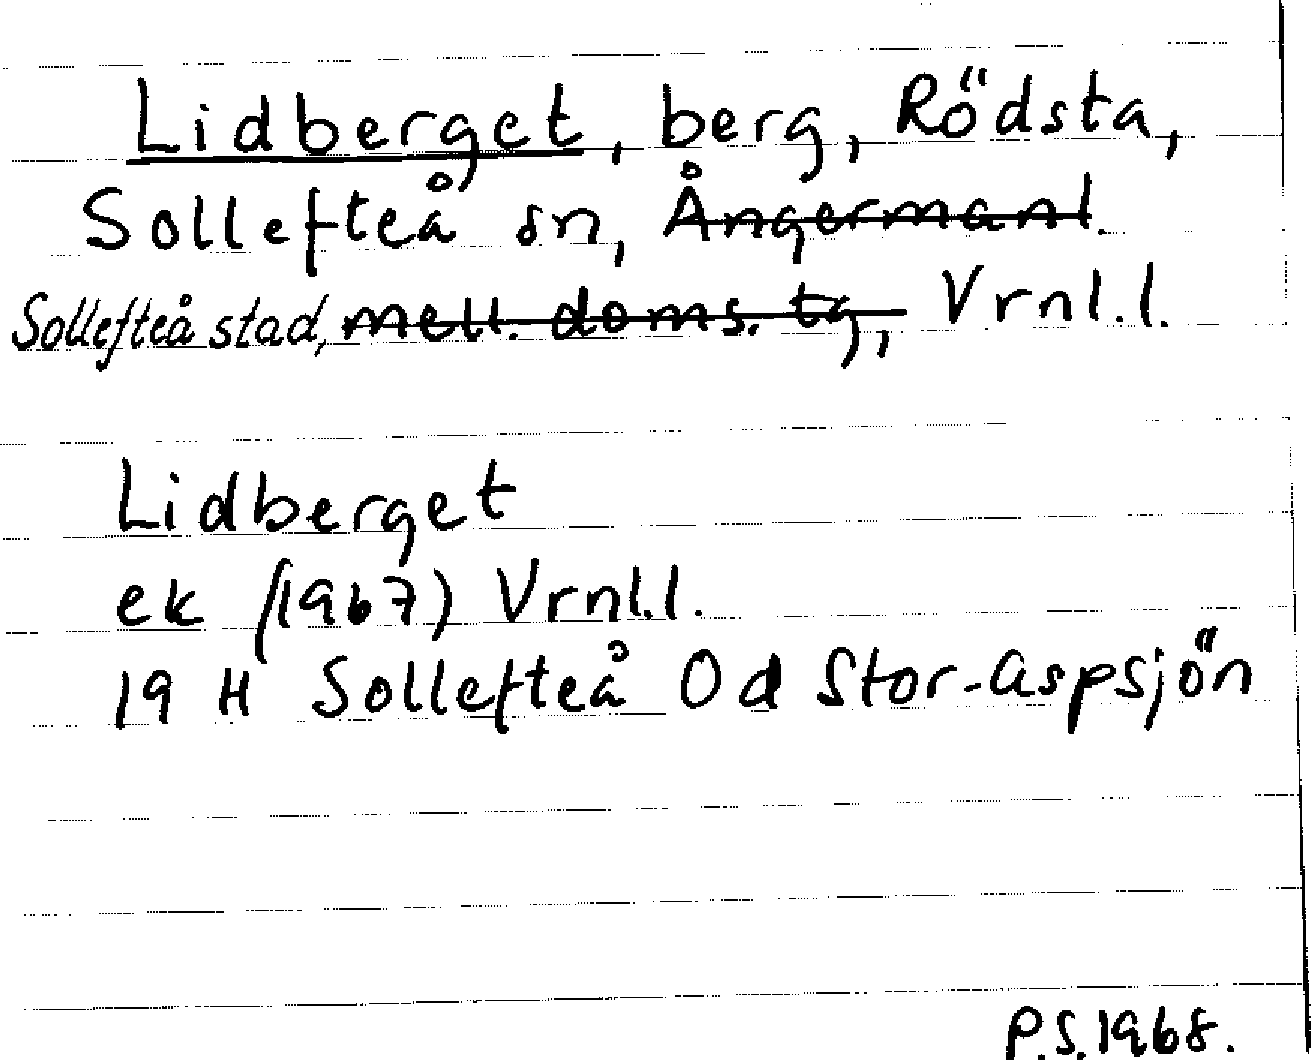 Lidberget, berg, Rödsta,
Sollefteå sn, Ångermanl.
Sollefteå stad, mell. doms. tg, Vrnl.l.
Lidberget
ek (1967) Vrnl.l.
19 H Sollefteå 0d Stor-Aspsjön
P.S.1968.